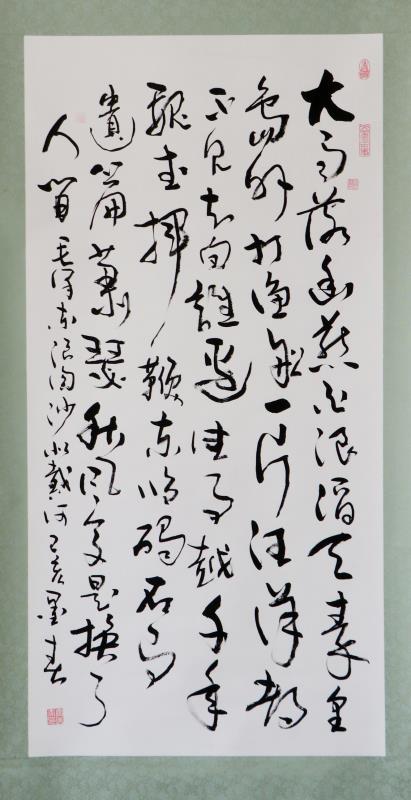 大雨落幽燕白浪滔天秦皇
島外打漁船一片汪洋都
不見知向誰邊往事越千年
魏武揮鞭東临碣石有
遺篇蕭瑟秋风今又是换了
人間 毛泽东浪淘沙北戴河 己亥墨春